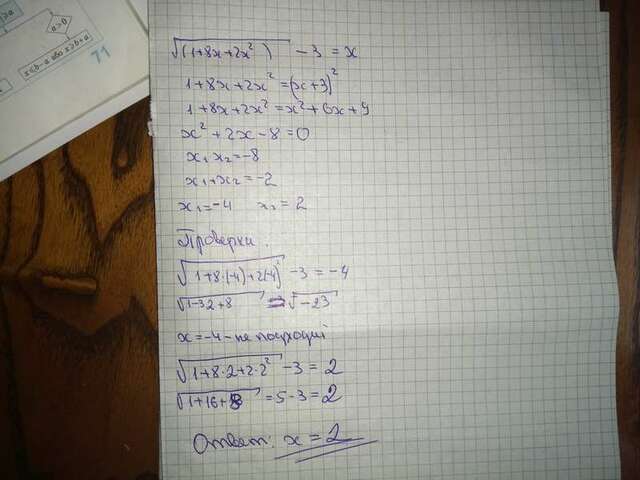 √(1+8x+2x²) - 3 = x
1+8x+2x² = (x+3)²
1+8x+2x² = x²+6x+9
x²+2x-8=0
x₁x₂=-8
x₁+x₂=-2
x₁=-4 x₂=2
Проверка:
√1+8·(-4)+2(-4)² -3=-4
√1-32+8 = √-23
x=-4 - не подходит
√1+8·2+2·2² -3=2
√1+16+8 =5-3=2
Ответ: x=2
71